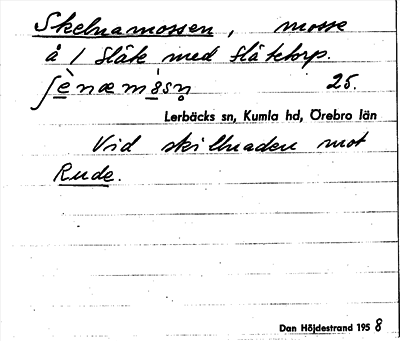 Skelnamossen, mosse
å 1 Släte med Slätetorp.
25.
Lerbäcks sn, Kumla hd, Örebro län
Vid skillnaden mot
Rude.
Dan Höjdestrand 1958